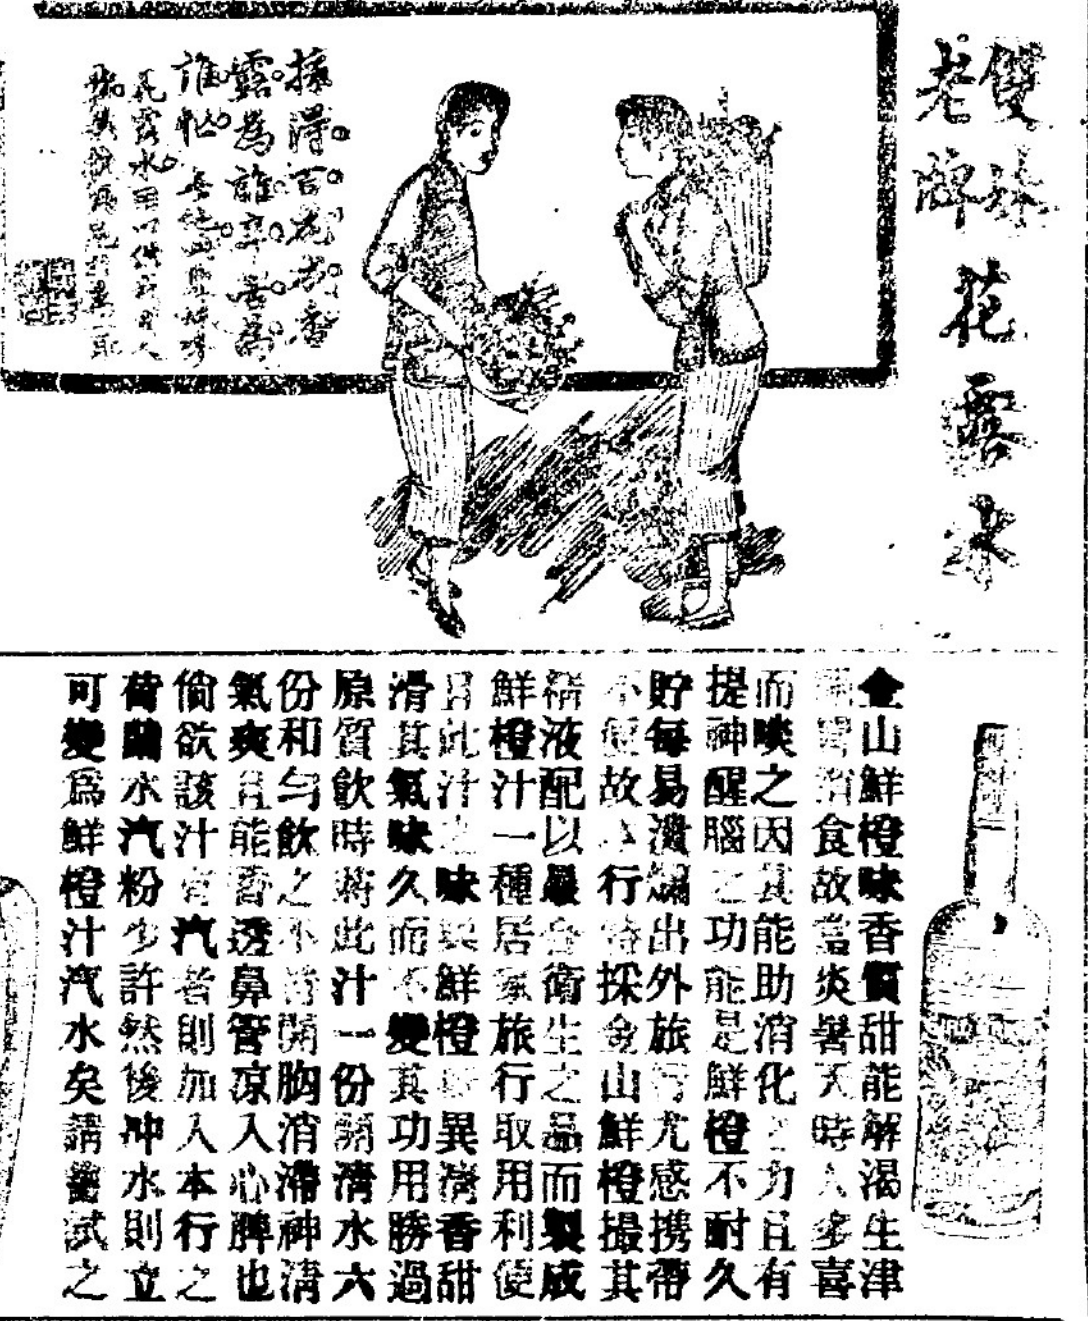 雙珠
老牌
花露水
採得百花成香
露為誰辛苦為
誰忙
花露水用以供
金山鮮橙味香質甜能解渴生津
開胃消食故當炎暑天時人多喜
而啖之因其能助消化之力且有
提神醒腦之功能是鮮橙不耐久
貯每易潰爛出外旅行尤感携帶
不便故本行特採金山鮮橙撮其
精液配以最合衛生之品而製成
鮮橙汁一種居家旅行取用利便
且此汁之味與鮮橙無異清香甜
滑其氣味久而不變其功用勝過
原質飲時將此汁一份開清水六
份和勻飲之不特開胸消滯神清
氣爽且能香透鼻管凉入心脾也
倘欲該汁有汽者則加入本行之
荷蘭水汽粉少許然後冲水則立
可變為鮮橙汁汽水矣請嘗試之